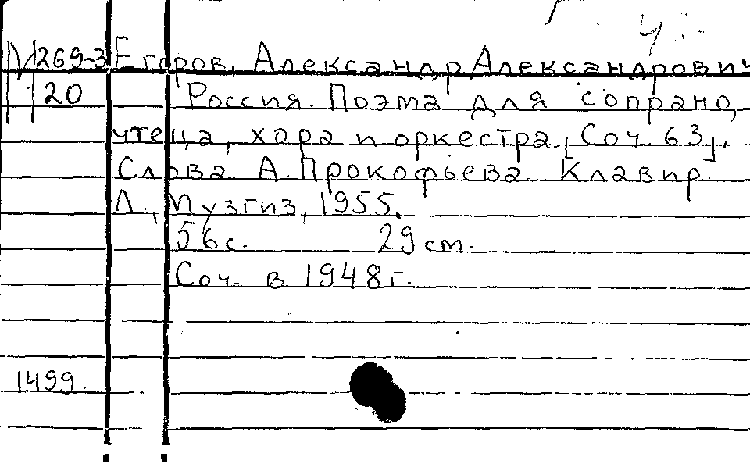 269-3 Егоров, Александр Александрович
20 Россия. Поэма для сопрано,
чтеца, хора и оркестра. [Соч. 63].
Слова А. Прокофьева. Клавир.
Л., Музгиз, 1955.
56 с. 29 cm.
Соч. в 1948 г.
1499.